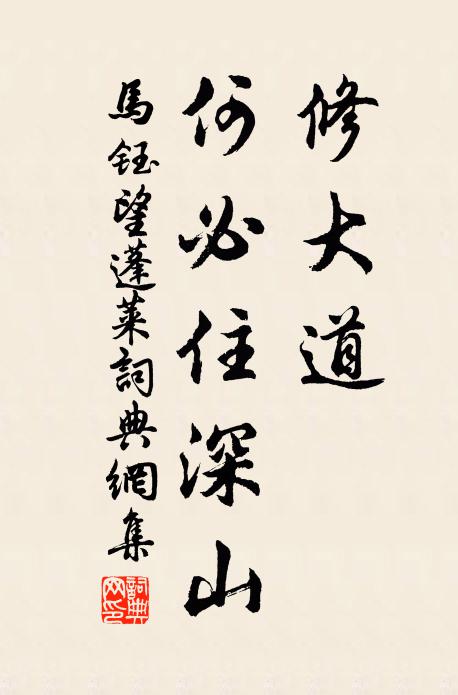 修大道
何必住深山
馬鈺望蓬萊詞典網集
詞典网印